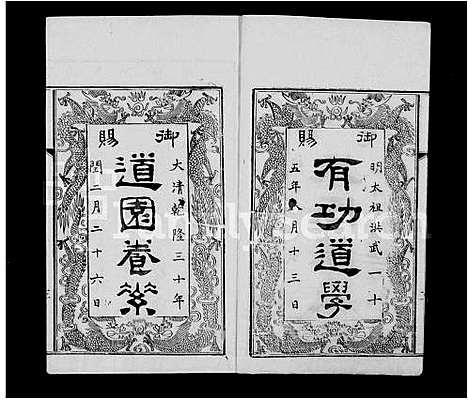 御賜
有功道學
明太祖洪武一十
五年八月十三日
御賜
道園養素
大清乾隆三十年
閏二月二十六日